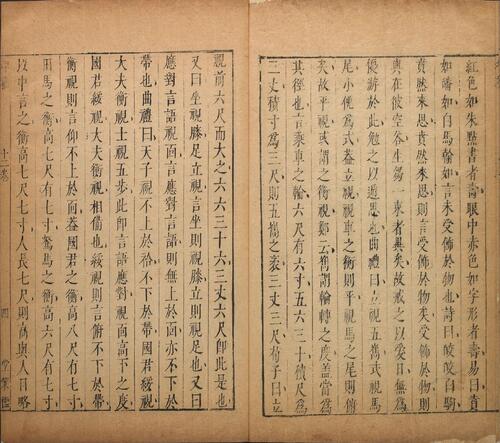 紅色如朱點書者壽眼中赤色如字形者壽易曰賁
如皤如白馬翰如言未受飾於物也詩曰皎皎白駒
賁然來思賁然來思則言受飾於物矣受飾於物則
與在彼空谷生芻一束者異矣故戒之以無為
優游於此勉之以遁思也曲禮曰立視五巂式視馬
尾小俛為式蓋立視視車之衡則平視馬之尾則俯
矣故平視或謂之衡視鄭云巂謂輪轉之度蓋當為
其徑也言乘車之輪六尺有六寸五六三十積尺為
三丈積寸為三尺則五巂之袤三丈三尺荀子曰立
視前六尺而大之六六三十六三丈六尺即此是也
又曰坐視膝立視足言坐則視膝立則視足也又曰
應對言語視面言應對言語則無上於面亦不下於
帶也曲禮曰天子視不上於袷不下於帶國君綏視
大夫衡視士視五步此即言語應對視面高下之度
國君綏視大夫衡視相備也綏視則言俯不下於帶
衡視則言仰不上於面蓋國君之衡高八尺有七寸
田馬之衡高七尺有七寸駑馬之衡高六尺有七寸
故中言之衡高七尺七寸人長七尺則高與人目略
四